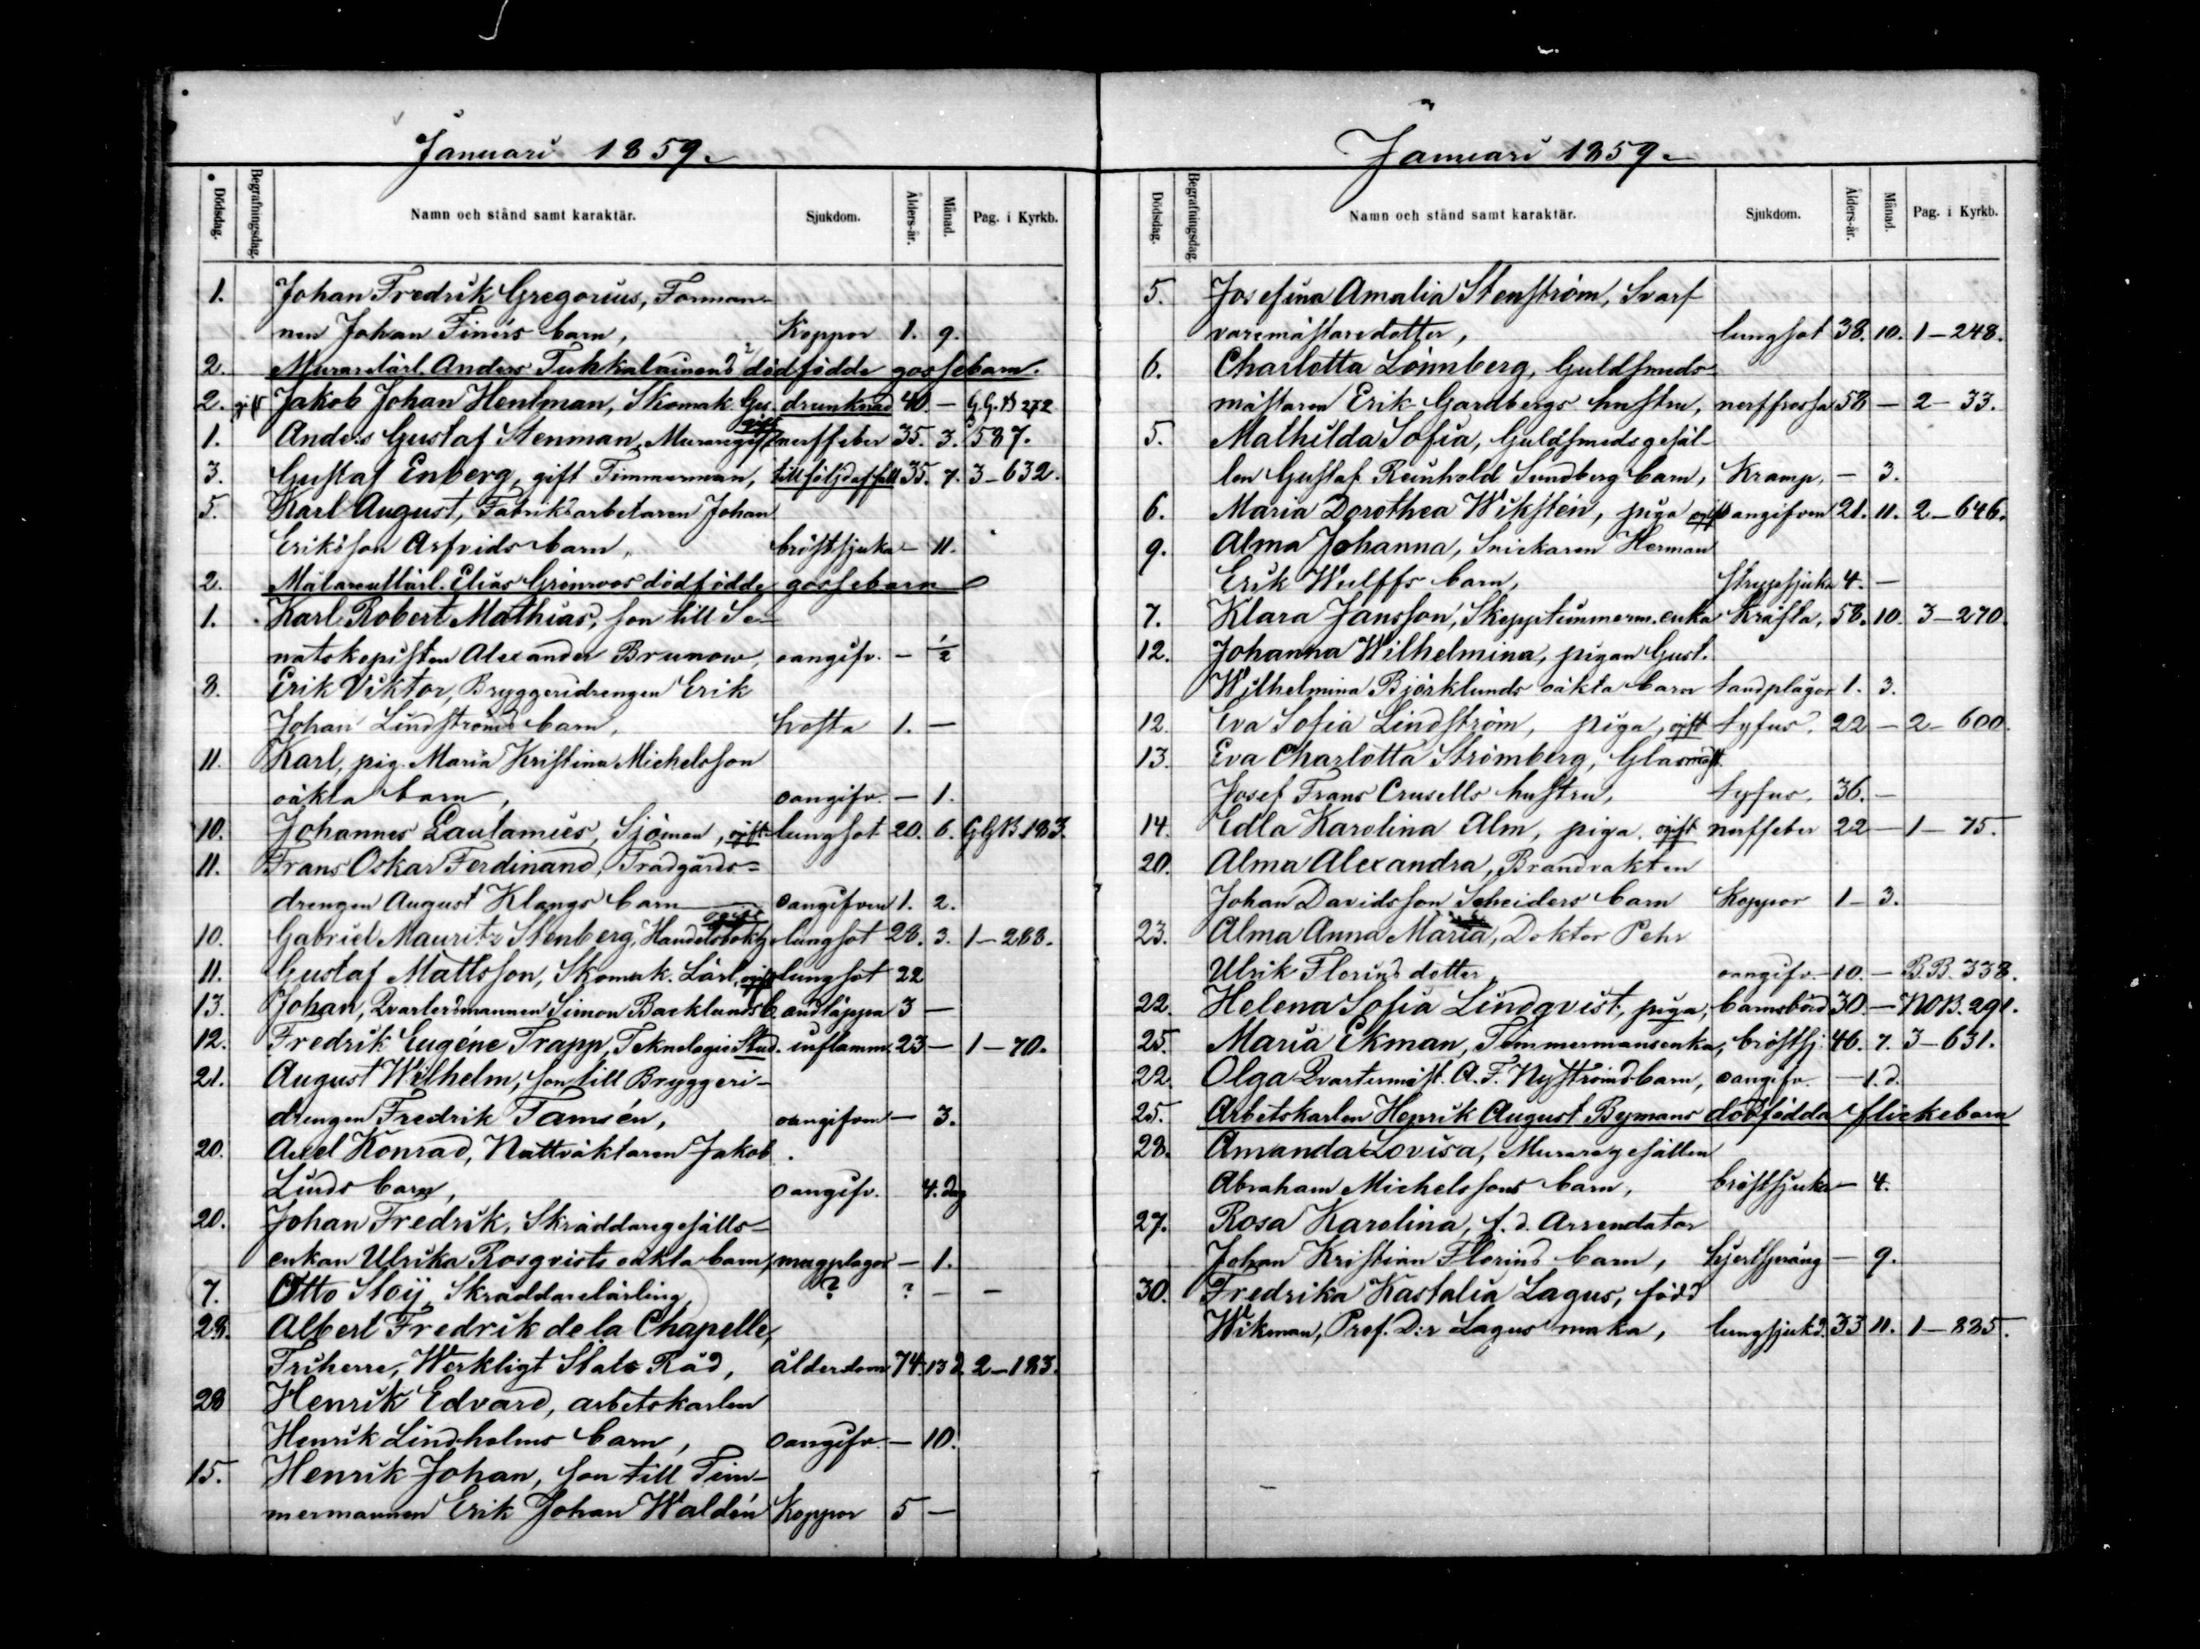 Januari 1859.
Dödsdag. Begrafningsdag. Namn och stånd samt karaktär. Sjukdom. Ålders-år. Månad. Pag. i Kyrkb.
1. Johan Fredrik Gregorius, Forman-
nen Johan Finérs barn, Koppor 1. 9.
2. Murarelärl. Anders Tuhkalainens dödfödde gossebarn.
2. gift Jakob Johan Hentman, Skomak. Ges. drunknad 40. — G.G.B 272
1. Anders Gustaf Stenman, Murareges. ogift nerffeber 35. 3. 587.
3. Gustaf Enberg, gift Timmerman, till följd af fall 35. 7. 3-632.
5. Karl August, Fabriksarbetaren Johan
Eriksson Arfvids barn, bröstsjuka — 11.
2. Målaremlärl. Elias Grönroos dödfödde gossebarn
1. Karl Robert Mathias, son till Se-
natskopisten Alexander Brunow, oangifv. — 1/2
8. Erik Viktor, Bryggeridrengen Erik
Johan Lindströms barn, hosta 1. —
11. Karl, pig. Maria Kristina Michelsson
oäkta barn, oangifv. — 1.
10. Johannes Lautamies, Sjöman, ogift lungsot 20. 6. GGB 183.
11. Frans Oskar Ferdinand, Trädgårds-
drengen August Klangs barn oangifven 1. 2.
10. Gabriel Mauritz Stenberg, Handelsbokh. ogift lungsot 28. 3. 1-288.
11. Gustaf Mattsson, Skomak. Lärl. ogift lungsot 22
13. Johan, Qvartersmannen Simon Backlunds b. andtäppa 3 —
12. Fredrik Eugéne Trapp, Teknologie Stud. inflamm. 23 — 1-70.
21. August Wilhelm, son till Bryggeri-
drengen Fredrik Tamsén, oangifven — 3.
20. Axel Konrad, Nattväktaren Jakob
Linds barn, oangifv. 4. dag
20. Johan Fredrik, Skräddaregesälls-
enkan Ulrika Rosqvists oäkta barn, magplågor — 1.
7. Otto Stoij, Skräddarelärling ? ? — —
28. Albert Fredrik de la Chapelle,
Friherre, Werkligt Stats Råd, ålderdom 74. 13 d. 2-183.
28 Henrik Edvard, arbetskarlen
Henrik Lindholms barn, oangifv. — 10.
15. Henrik Johan, son till Tim-
mermannen Erik Johan Waldén Koppor 5 —
Januari 1859.
Dödsdag. Begrafningsdag. Namn och stånd samt karaktär. Sjukdom. Ålders-år. Månad. Pag. i Kyrkb.
5. Josefina Amalia Stenström, Svarf-
varemästaredotter, lungsot 38. 10. 1-248.
6. Charlotta Lönnberg, Guldsmeds-
mästaren Erik Gardbergs hustru, nerffrossa 58 — 2-33.
5. Mathilda Sofia, Guldsmedsgesäl-
len Gustaf Reinhold Sundberg barn, Kramp, — 3.
6. Maria Dorothea Wiksten, piga ogift oangifven 21. 11. 2-646.
9. Alma Johanna, Snickaren Herman
Erik Wulffs barn, strypsjuka 4. —
7. Klara Jansson, Skeppstimmerm. enka Kräfta, 58. 10. 3-270.
12. Johanna Wilhelmina, pigan Gust.
Wilhelmina Björklunds oäkta barn tandplågor 1. 3.
12. Eva Sofia Lindström, piga, ogift tyfus, 22 — 2-600.
13. Eva Charlotta Strömberg, Glasmäst.
Josef Frans Crusells hustru, tyfus, 36. —
14. Edla Karolina Alm, piga, ogift nerffeber 22 — 1-75.
20. Alma Alexandra, Brandvakten
Johan Davidsson Scheiders barn Koppor 1 — 3.
23. Alma Anna Maria, Doktor Pehr
Ulrik Florins dotter, oangifv. 10. — B.B. 338.
22. Helena Sofia Lindqvist, piga, barnsbörd 30. — NOB. 291.
25. Maria Ekman, Timmermansenka, bröstsj. 46. 7. 3-631.
22. Olga Qvartermäst. A. F. Nyströms barn, oangifv. — 1. d.
25. Arbetskarlen Henrik August Bymans dödfödda flickebarn
28. Amanda Lovisa, Muraregesällen
Abraham Michelssons barn, bröstsjuka — 4.
27. Rosa Karolina, f.d. Arrendator
Johan Kristian Florins barn, hjertspräng — 9.
30. Fredrika Kastalia Lagus, född
Wikman, Prof. D:r Lagus maka, lungsjukd. 33 11. 1-885.